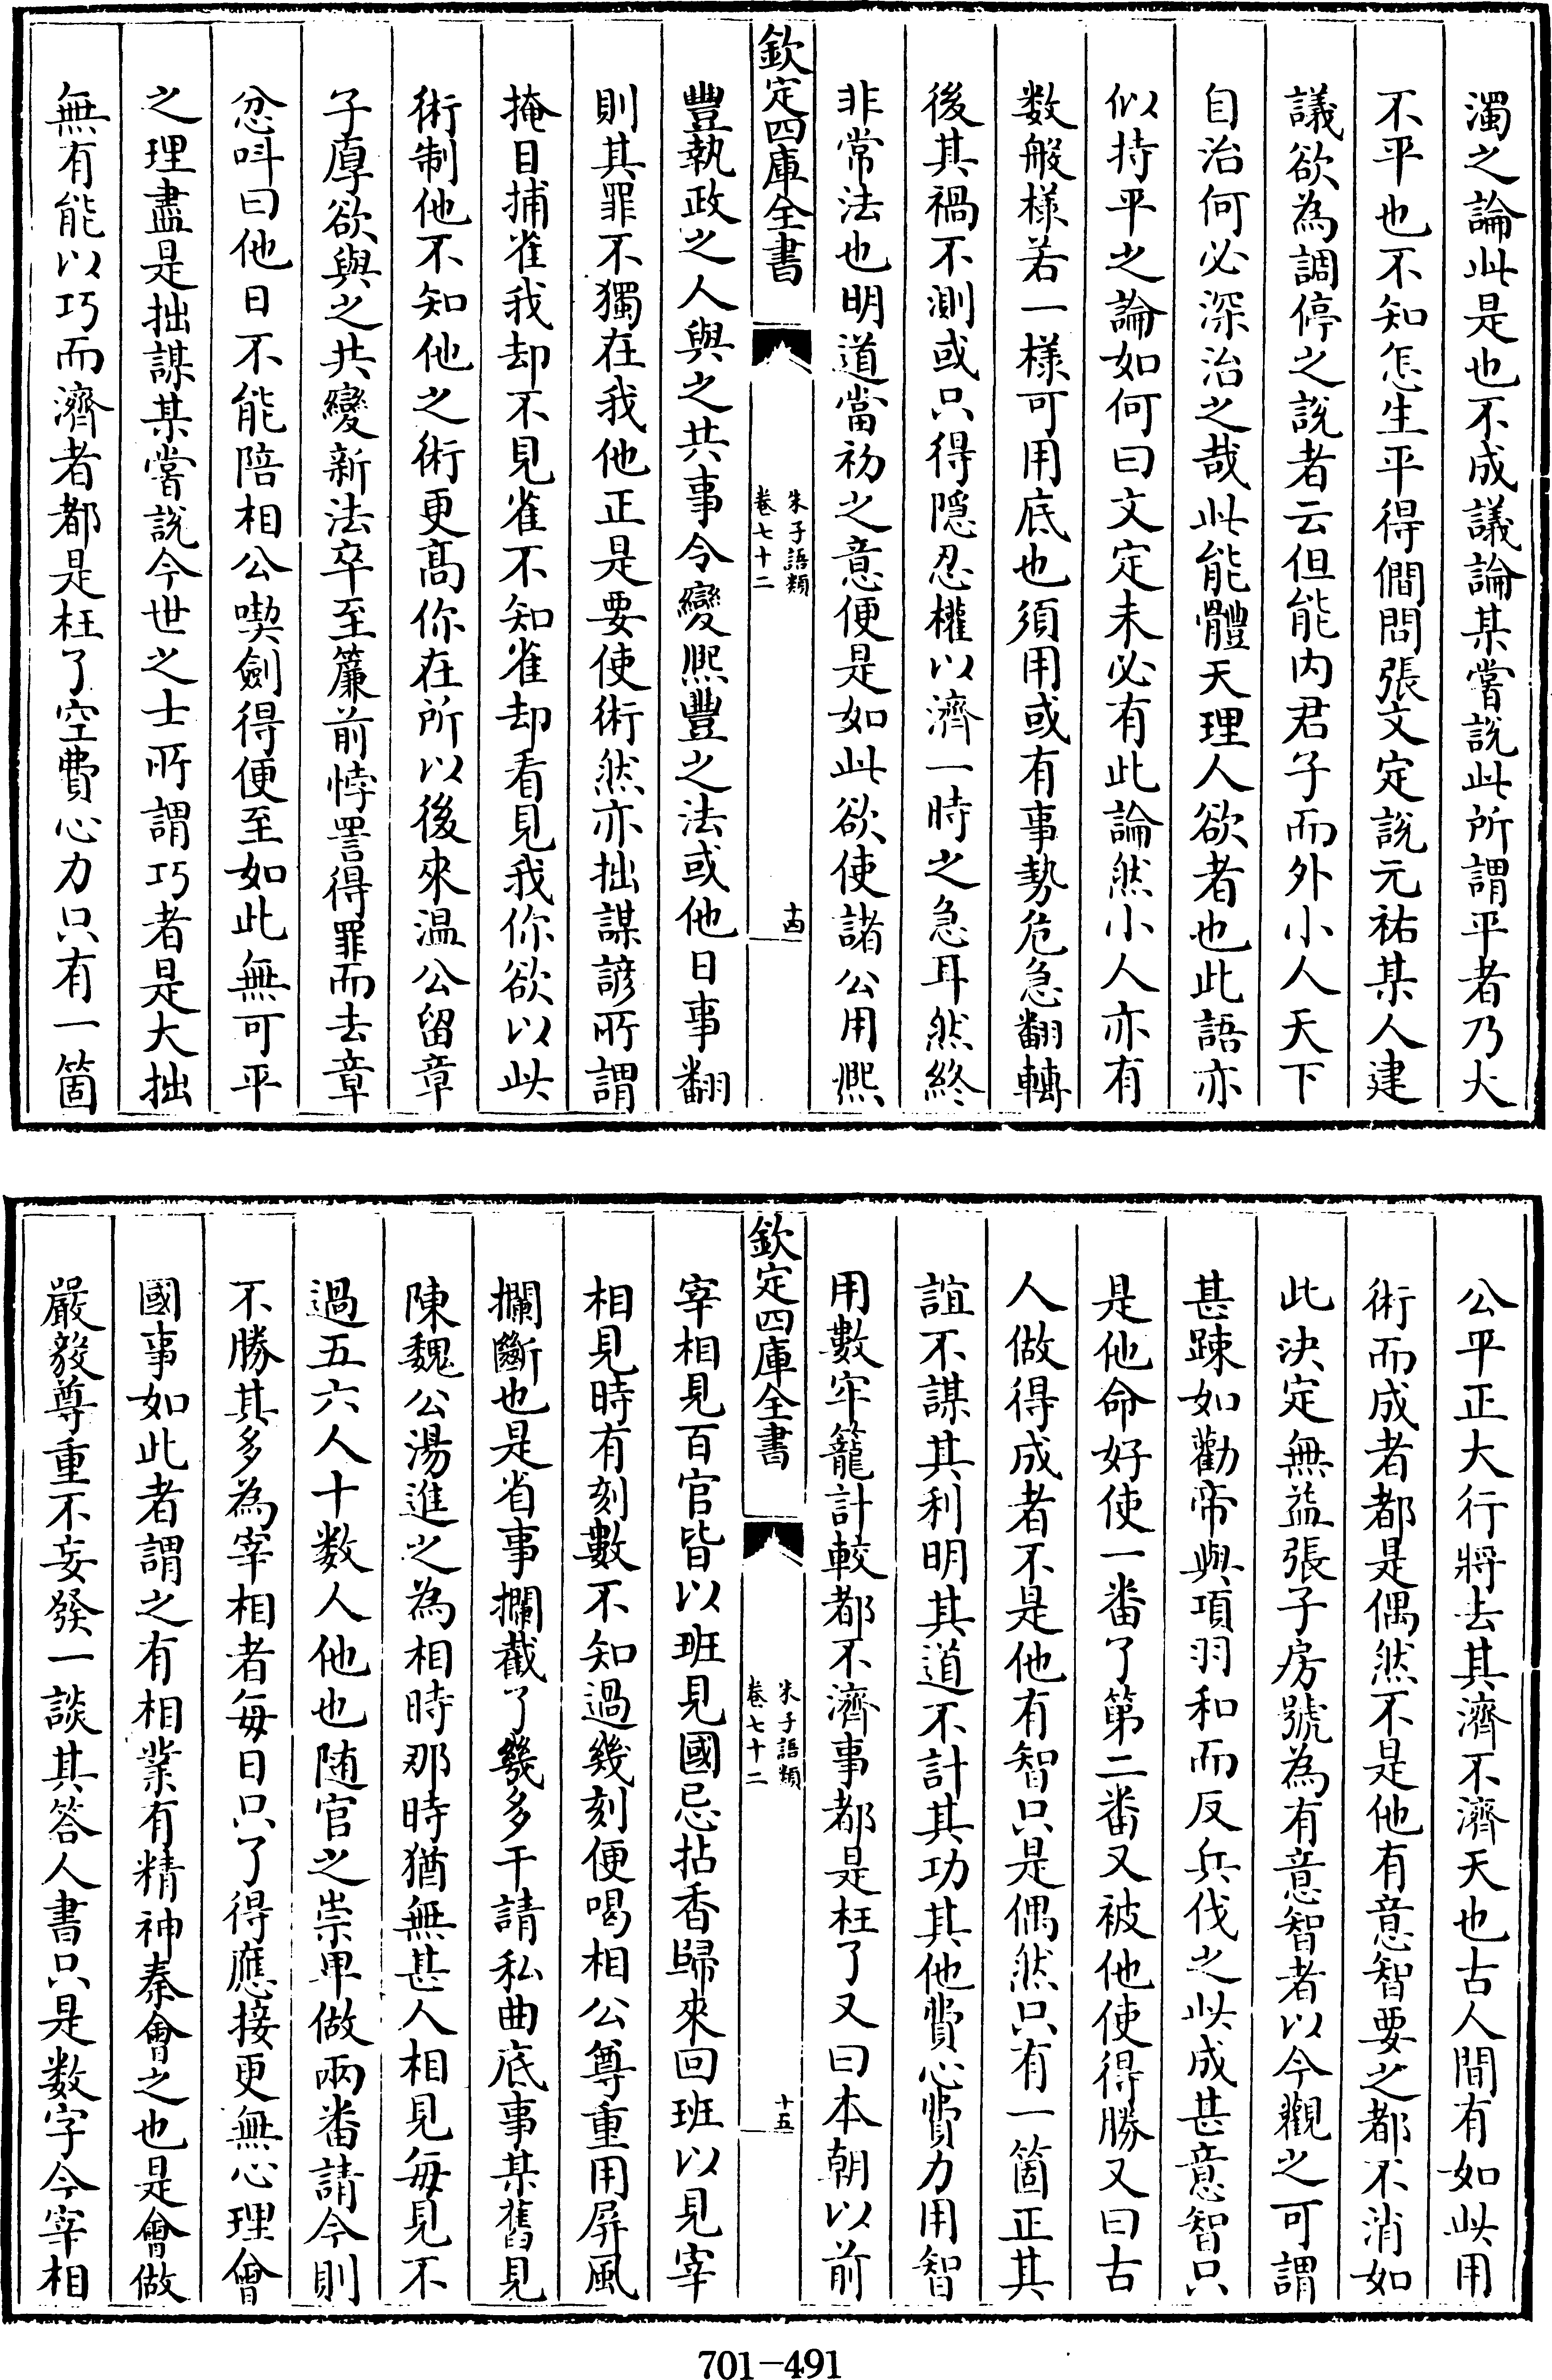 濁之論此是也不成議論某嘗説此所謂平者乃大
不平也不知怎生平得僩問張文定説元祐某人建
議欲為調停之説者云但能内君子而外小人天下
自治何必深治之哉此能體天理人欲者也此語亦
似持平之論如何曰文定未必有此論然小人亦有
数般様若一様可用底也須用或有事勢危急翻轉
後其禍不測或只得隠忍權以濟一時之急耳然終
非常法也明道當初之意便是如此欲使諸公用熈
欽定四庫全書
朱子語類
卷七十二
十四
豐執政之人與之共事令變熈豐之法或他日事翻
則其罪不獨在我他正是要使術然亦拙謀諺所謂
掩目捕雀我却不見雀不知雀却看見我你欲以此
術制他不知他之術更髙你在所以後來温公留章
子厚欲與之共變新法卒至簾前悖詈得罪而去章
忿呌曰他日不能陪相公喫劍得便至如此無可平
之理盡是拙謀某嘗説今世之士所謂巧者是大拙
無有能以巧而濟者都是枉了空費心力只有一箇
公平正大行將去其濟不濟天也古人間有如此用
術而成者都是偶然不是他有意智要之都不消如
此決定無益張子房號為有意智者以今觀之可謂
甚踈如勸帝與項羽和而反兵伐之此成甚意智只
是他命好使一番了第二番又被他使得勝又曰古
人做得成者不是他有智只是偶然只有一箇正其
誼不謀其利明其道不計其功其他費心費力用智
用數牢籠計較都不濟事都是枉了又曰本朝以前
欽定四庫全書
朱子語類
卷七十二
十五
宰相見百官皆以班見國忌拈香歸來回班以見宰
相見時有刻數不知過幾刻便喝相公尊重用屏風
攔斷也是省事攔截了幾多干請私曲底事某舊見
陳魏公湯進之為相時那時猶無甚人相見每見不
過五六人十数人他也随官之崇卑做兩番請今則
不勝其多為宰相者每日只了得應接更無心理㑹
國事如此者謂之有相業有精神秦㑹之也是㑹做
嚴毅尊重不妄發一談其答人書只是数字今宰相
701-491